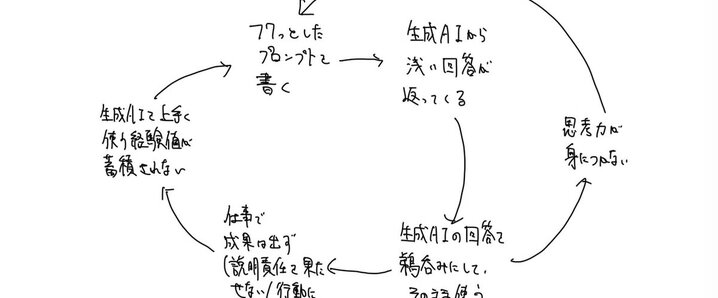 フワっとした
プロンプトを
書く
生成AIから
浅い回答が
返ってくる
生成AIを上手く
使う経験値が
蓄積されない
思考力が
身につかない
仕事で
成果は出ず
(説明責任を果た
せない/行動に
生成AIの回答を
鵜呑みにして、
そのまま使う